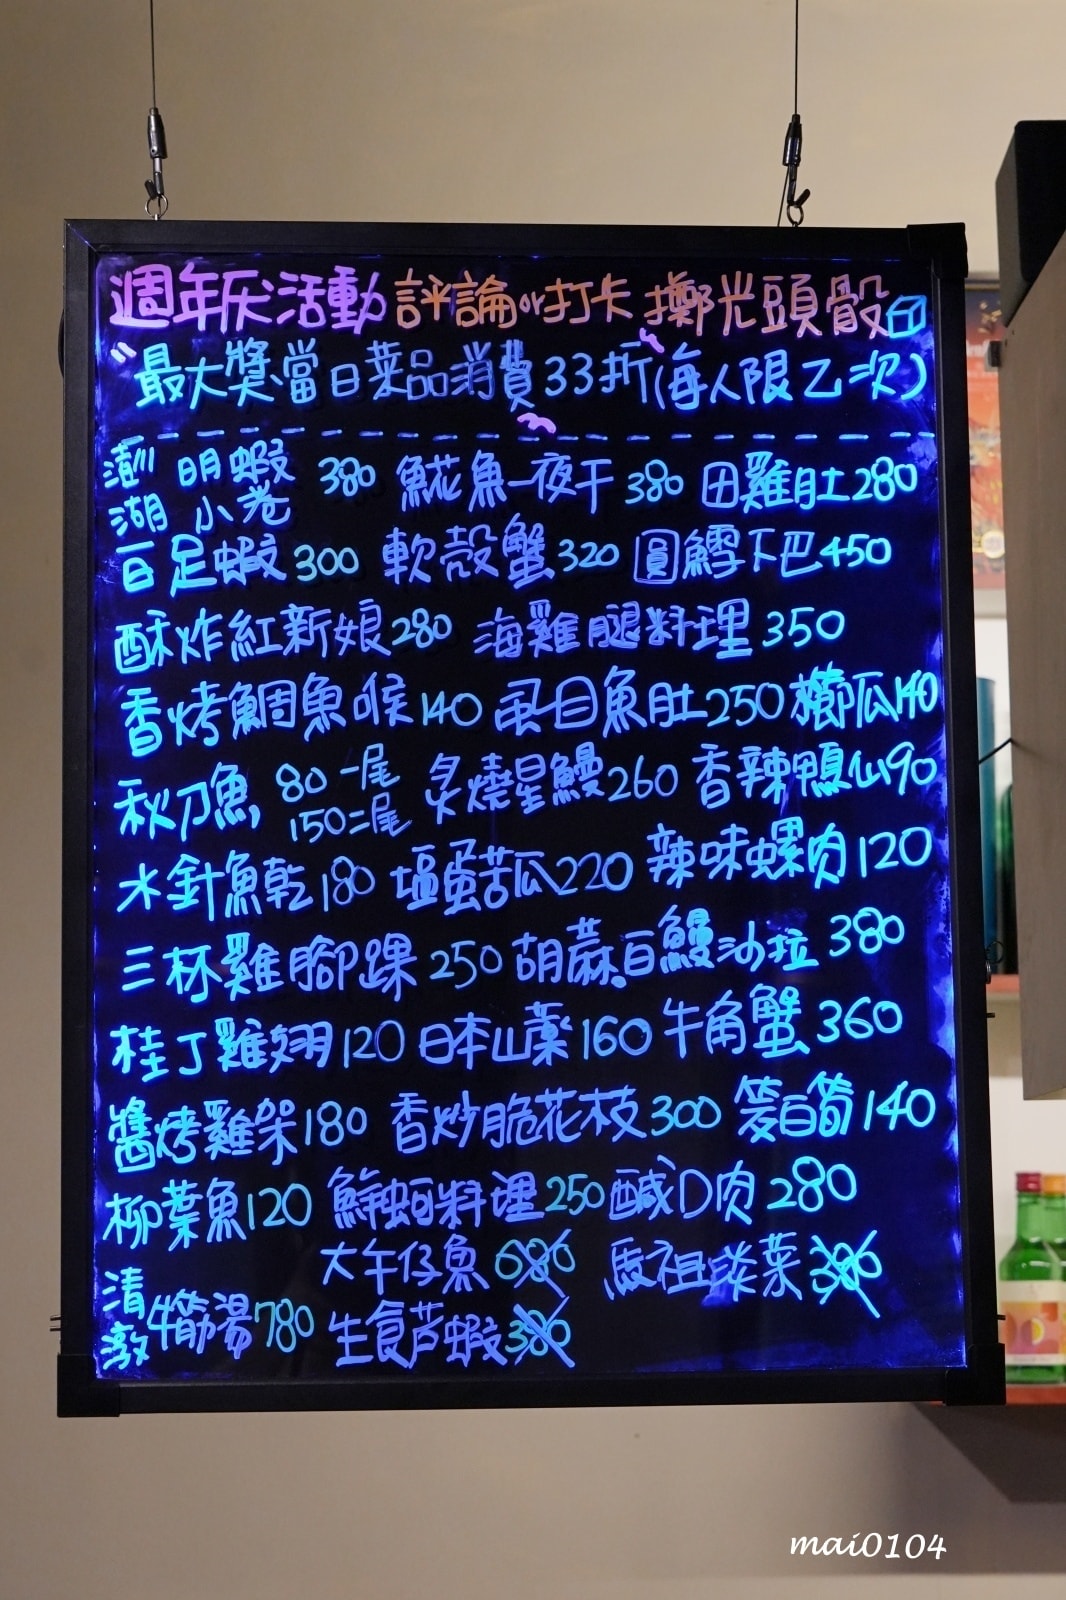 週年慶活動 評論or打卡 擲光頭骰
最大獎:當日菜品消費33折(每人限乙次)
澎湖 明蝦小卷 380 魠魚一夜干 380 田雞肚 280
百足蝦 300 軟殼蟹 320 圓鱈下巴 450
酥炸紅新娘 280 海雞腿料理 350
香烤鯛魚喉 140 虱目魚肚 250 櫛瓜 140
秋刀魚 80一尾 150二尾 炙燒星鰻 260 香辣鴨仙 90
水針魚乾 180 塩蛋苦瓜 220 辣味螺肉 120
三杯雞腳踝 250 胡蔴白鰻沙拉 380
桂丁雞翅 120 日本山藥 160 牛角蟹 360
醬烤雞架 180 香炒脆花枝 300 筊白筍 140
柳葉魚 120 鮮蚵料理 250 鹹D肉 280
大午仔魚 680 馬祖淡菜 386
清燉牛筋湯 780 生食芦蝦 380
mai0104